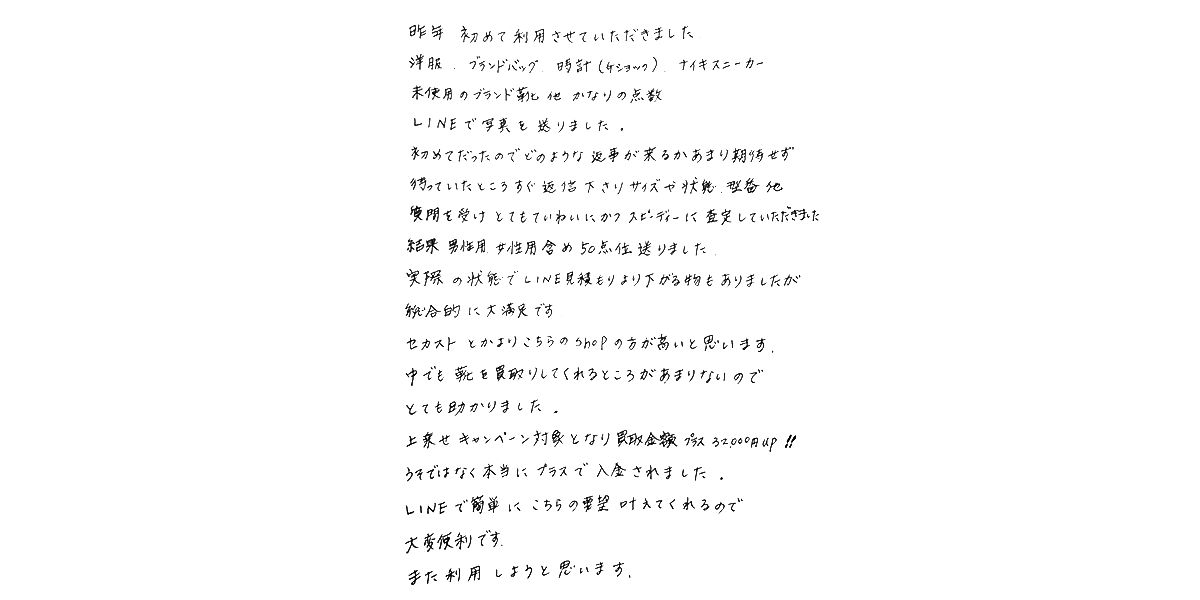 昨年 初めて利用させていただきました
洋服、ブランドバッグ、時計(Gショック)、ナイキスニーカー
未使用のブランド靴 他 かなりの点数
LINEで写真を送りました。
初めてだったのでどのような返事が来るかあまり期待せず
待っていたところすぐ返信下さりサイズや状態、型番他
質問を受け とてもていねいにかつスピーディーに査定していただきました
結果 男性用、女性用含め50点位送りました。
実際の状態でLINE見積もりより下がる物もありましたが
総合的に大満足です
セカストとかよりこちらのshopの方が高いと思います。
中でも靴を買取りしてくれるところがあまりないので
とても助かりました。
上乗せキャンペーン対象となり買取金額プラス32,000円up!!
うそではなく本当にプラスで入金されました。
LINEで簡単にこちらの要望叶えてくれるので
大変便利です。
また利用しようと思います。